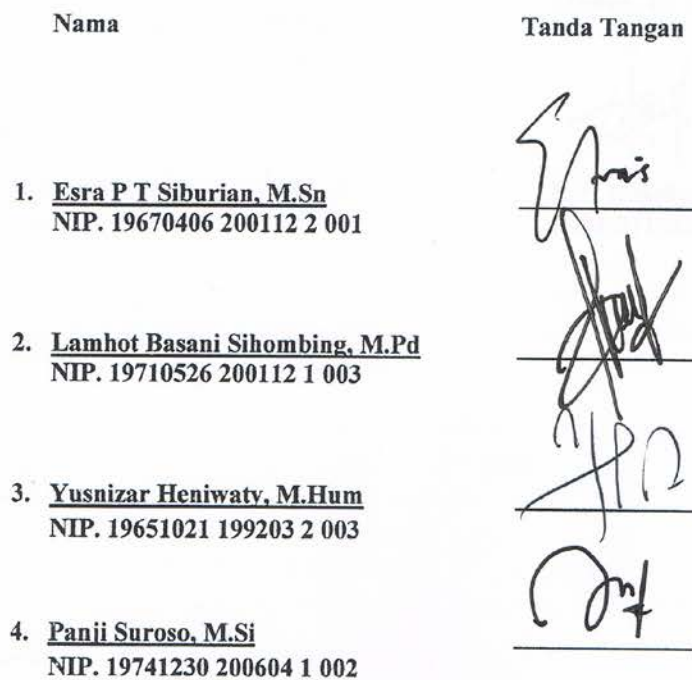 Nama Tanda Tangan
1. Esra P T Siburian, M.Sn
NIP. 19670406 200112 2 001
2. Lamhot Basani Sihombing, M.Pd
NIP. 19710526 200112 1 003
3. Yusnizar Heniwaty, M.Hum
NIP. 19651021 199203 2 003
4. Panji Suroso, M.Si
NIP. 19741230 200604 1 002